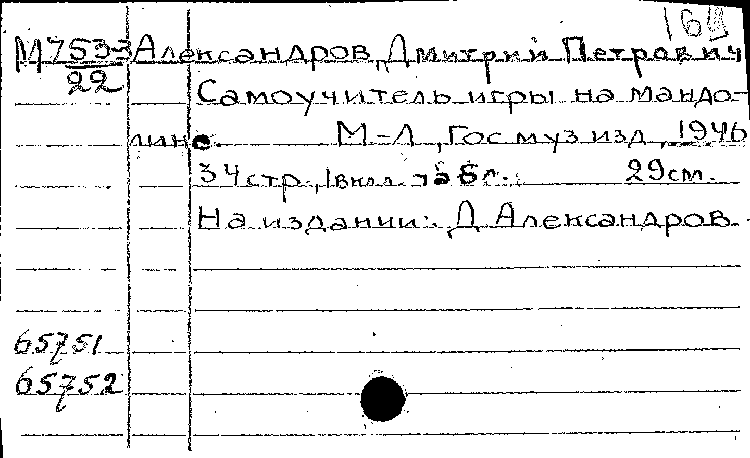 16
М 7533 Александров, Дмитрий Петрович
22
Самоучитель игры на мандо-
лине. М-Л, Госмузиздат, 1946
34 стр., 1 вкл.
29см.
На издании: Д Александров
65751
65752